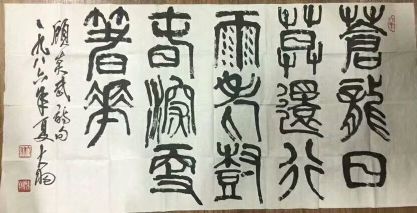 蒼龍日
莫還行
雨老尌
春深更
箸華
顧炎武詩句
一九八六年夏